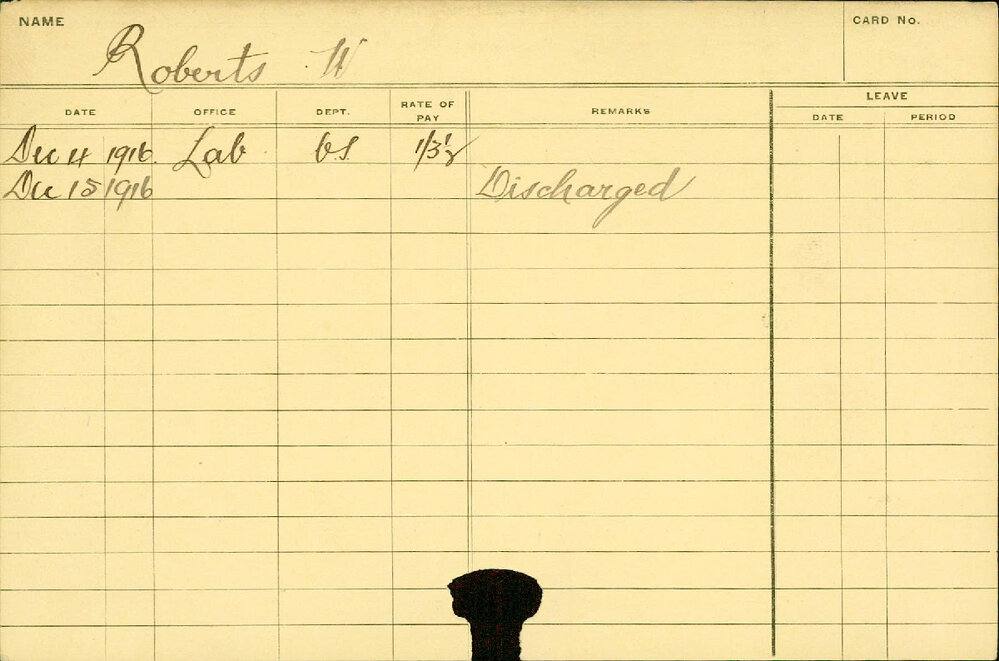 NAME Roberts W CARD No.
DATE OFFICE DEPT. RATE OF PAY REMARKS LEAVE
DATE PERIOD
Dec 4 1916 Lab 1/3½
Dec 15 1916 Discharged